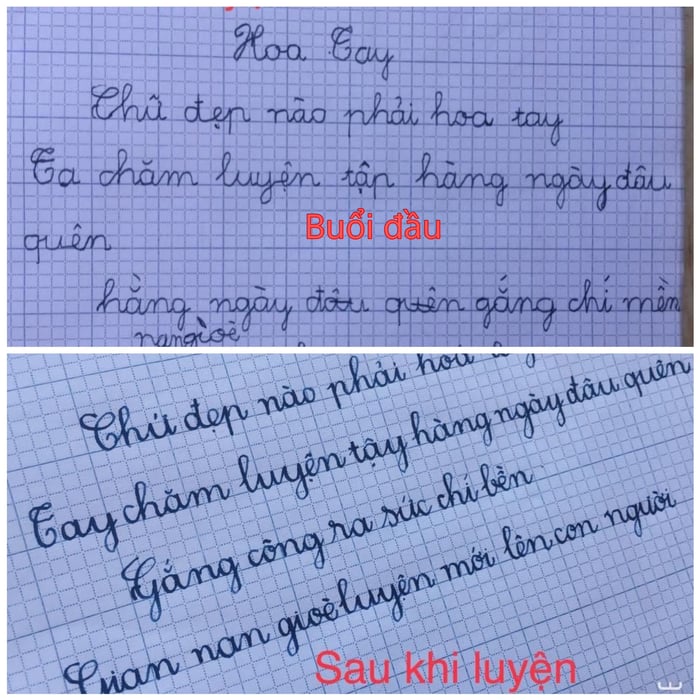 Hoa Tay
Chữ đẹp nào phải hoa tay
Ta chăm luyện tập hàng ngày đâu
Buổi đầu
quên
hằng ngày đâu quên gắng chí mền
nangioè
Chữ đẹp nào phải hoa
Tay chăm luyện tậy hàng ngày đâu quên
Gắng công ra sức chí bền
Gian nan gioè luyện mới lên con người
Sau khi luyện